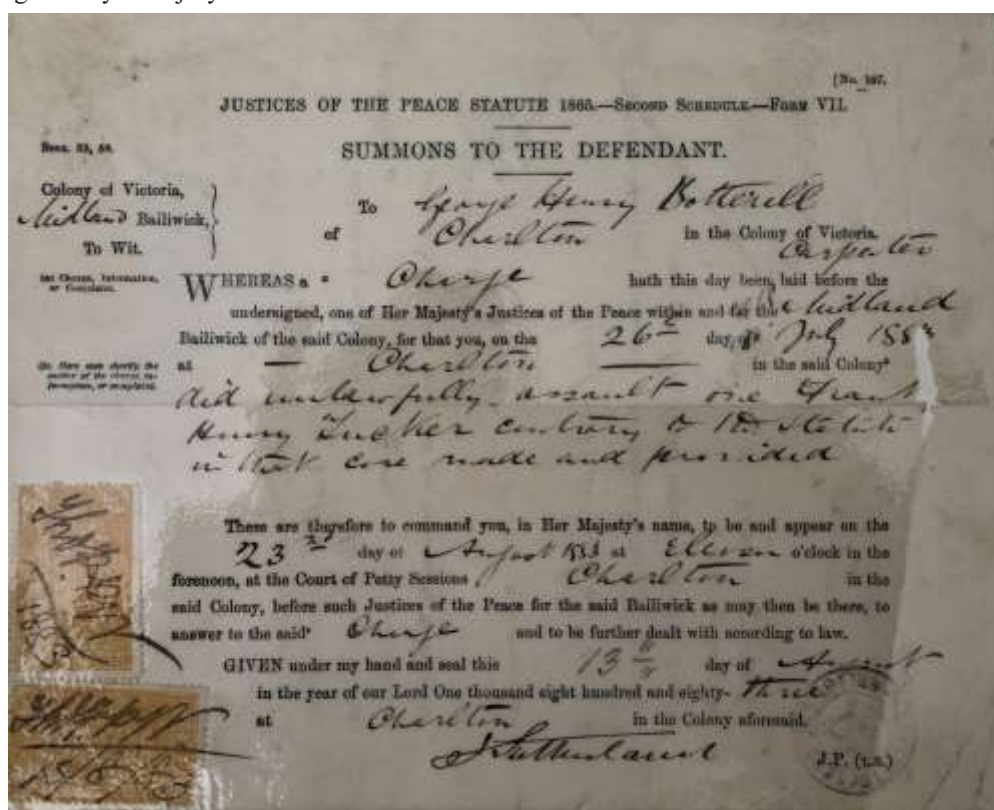 [No. 107.
JUSTICES OF THE PEACE STATUTE 1865.—SECOND SCHEDULE.—FORM VII.
SUMMONS TO THE DEFENDANT.
Colony of Victoria,
Midland Bailiwick,
To Wit.
To George Henry Botterill
of Charlton in the Colony of Victoria.
Carpenter
(a) Charge, Information, or Complaint.
WHEREAS a * Charge hath this day been laid before the
undersigned, one of Her Majesty's Justices of the Peace within and for the Midland
Bailiwick of the said Colony, for that you, on the 26th day of July 188
at — Charlton — in the said Colony*
did unlawfully assault one Frank
Henry Tucker contrary to the statute
in that case made and provided
These are therefore to command you, in Her Majesty's name, to be and appear on the
23rd day of August 1883 at Eleven o'clock in the
forenoon, at the Court of Petty Sessions Charlton in the
said Colony, before such Justices of the Peace for the said Bailiwick as may then be there, to
answer to the said* Charge and to be further dealt with according to law.
GIVEN under my hand and seal this 13th day of August
in the year of our Lord One thousand eight hundred and eighty- three
at Charlton in the Colony aforesaid.
J Sutherland
J.P. (L.S.)